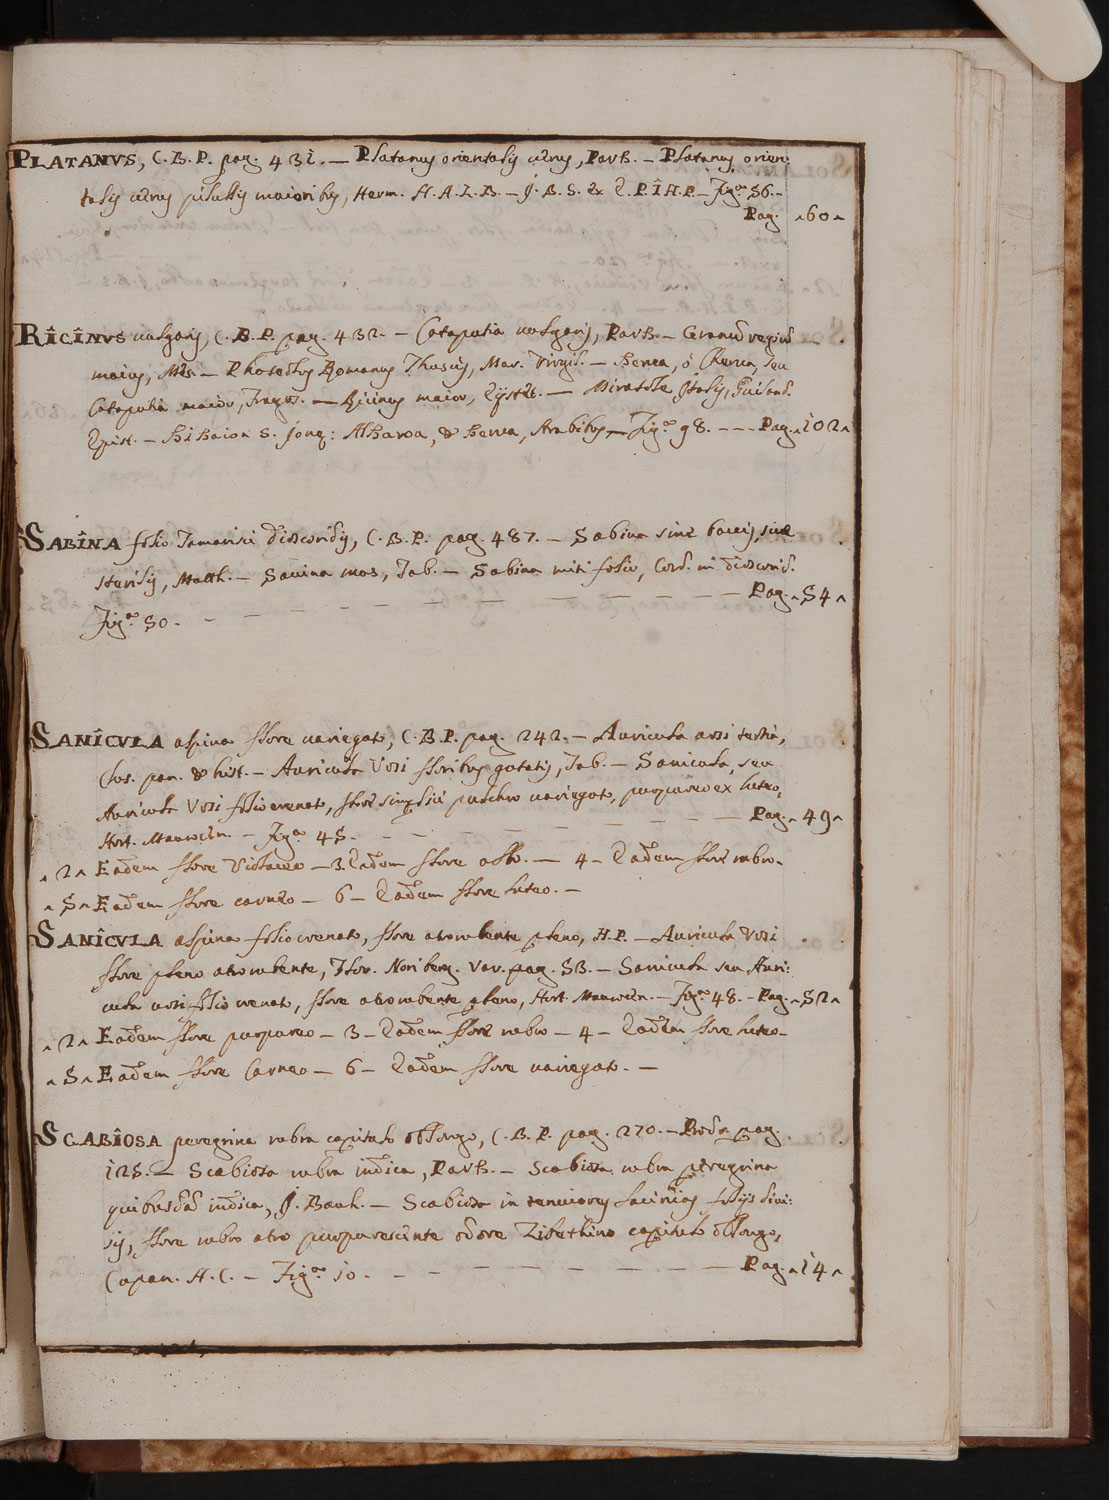 PLATANVS, C.B.P. pag. 431. — Platanus orientalis verus, Park. — Platanus orien:
talis verus pilulis maioribus, Herm. H.A.L.B. — J.B.S. Ex E.P.I.H.P. — Fig.ª 56. -
Pag. ^60^
RICINVS vulgaris, C.B.P. pag. 432. — Cataputia vulgaris, Park. — Granum regium
maius, Mes. — Romanus Thuscis, Mar. Virgil. — Kerva, o Cherva, seu
Cataputia maior, Tragus. — Ricinus maior, Eystet. — Mirasole Italis, Guiland.
Epist. — Kikaion S. Jonę: Alkaroa, & Kerva, Arabibus — Fig.ª 98. - - - Pag. ^102^
SABINA folio Tamarisci dioscoridis, C.B.P. pag. 487. — Sabina sine baccis, sive
sterilis, Matth. — Savina mas, Tab. — Sabina miti folio, Cord. in dioscorid.
Pag. ^54^
Fig.ª 50. -
SANICVLA alpina flore variegato, C.B.P. pag. 242. — Auricula ursi tertia,
Clus. pan. & hist. — Auricula Ursi floribus gutatis, Tab. — Sanicula, seu
Auricula Ursi folio crenato, flore singulari pulchro variegato, purpureo ex luteo,
Hort. — Fig.ª 45. - Pag. ^49^
^2^ Eadem flore violaceo — 3. Eadem flore albo. — 4 — Eadem flore rubro -
^5^ Eadem flore carneo — 6 — Eadem flore luteo. —
SANICVLA alpina folio crenato, flore atrorubente pleno, H.P. — Auricula Ursi
flore pleno atrorubente, Flor. Noriberg. Var. pag. 53. — Sanicula seu Auri:
cula ursi folio crenato, flore atrorubente pleno, Hort. — Fig.ª 48. - Pag. ^52^
^2^ Eadem flore purpureo — 3 — Eadem flore rubro — 4 — Eadem flore luteo -
^5^ Eadem flore Carneo — 6 — Eadem flore variegato. —
SCABIOSA peregrina rubra capitulo oblongo, C.B.P. pag. 270. — Prodr. pag.
125. — Scabiosa rubra indica, Park. — Scabiosa rubra peregrina
quibusdam indica, J. Bauh. — Scabiosa in tenuiores lacinias foliis divi:
sis, flore rubro atro purpurescente odore Zibethino capitulo oblongo,
Cupan. H.C. — Fig.ª 10. - Pag. ^14^